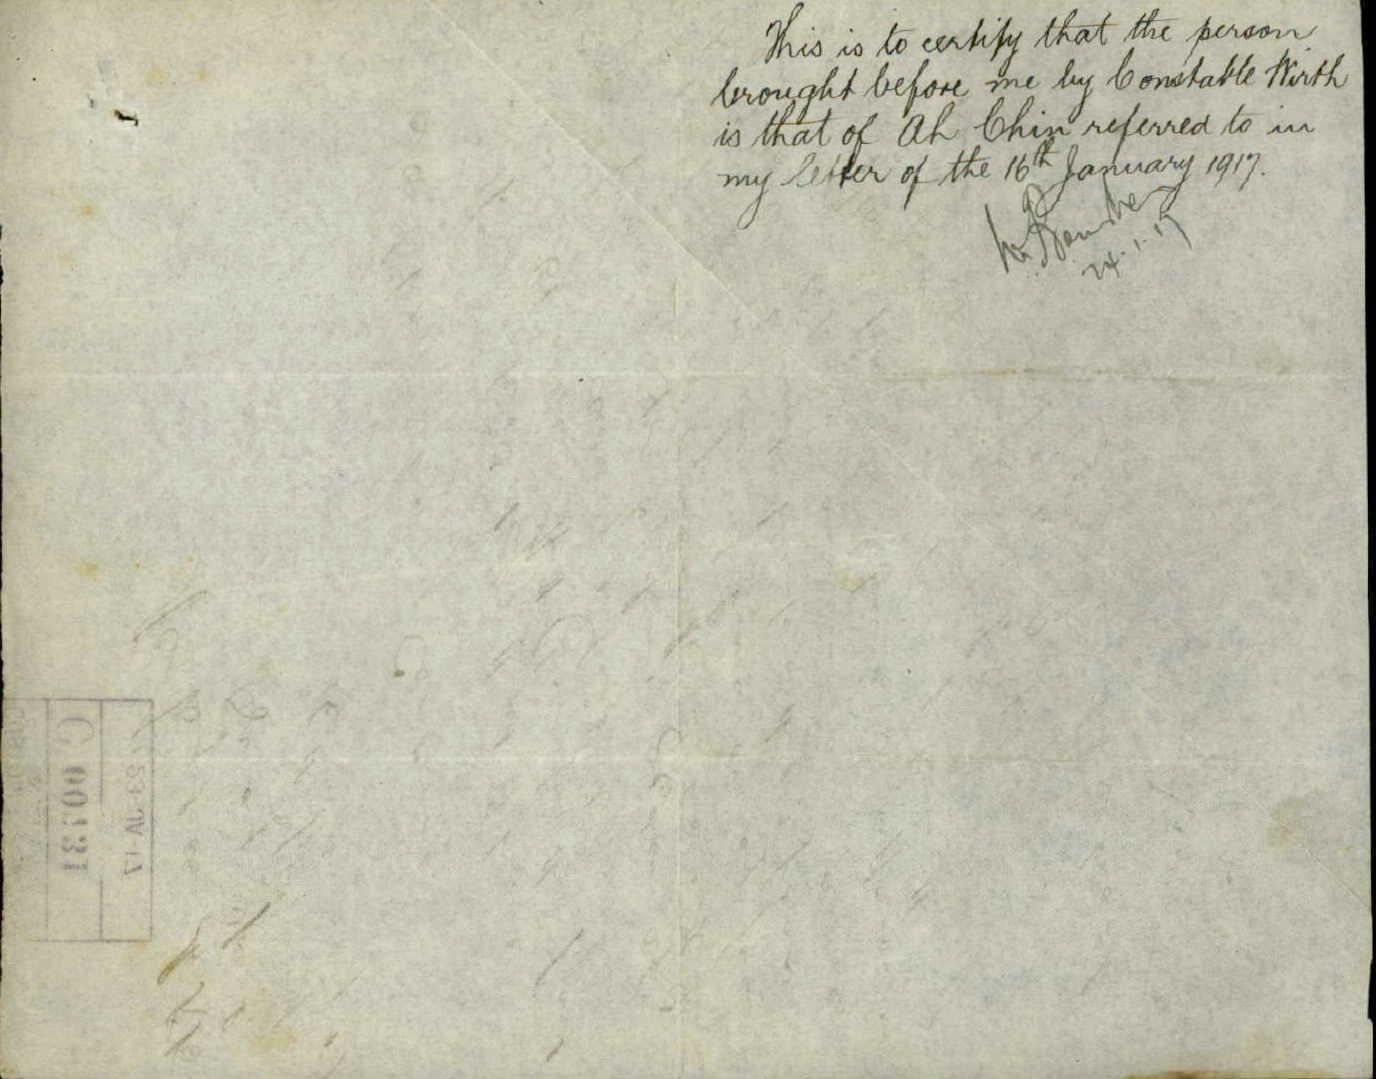 This is to certify that the person
brought before me by Constable Wirth
is that of Ah Chin referred to in
my letter of the 16th January 1917.
24.1.17
C 00231